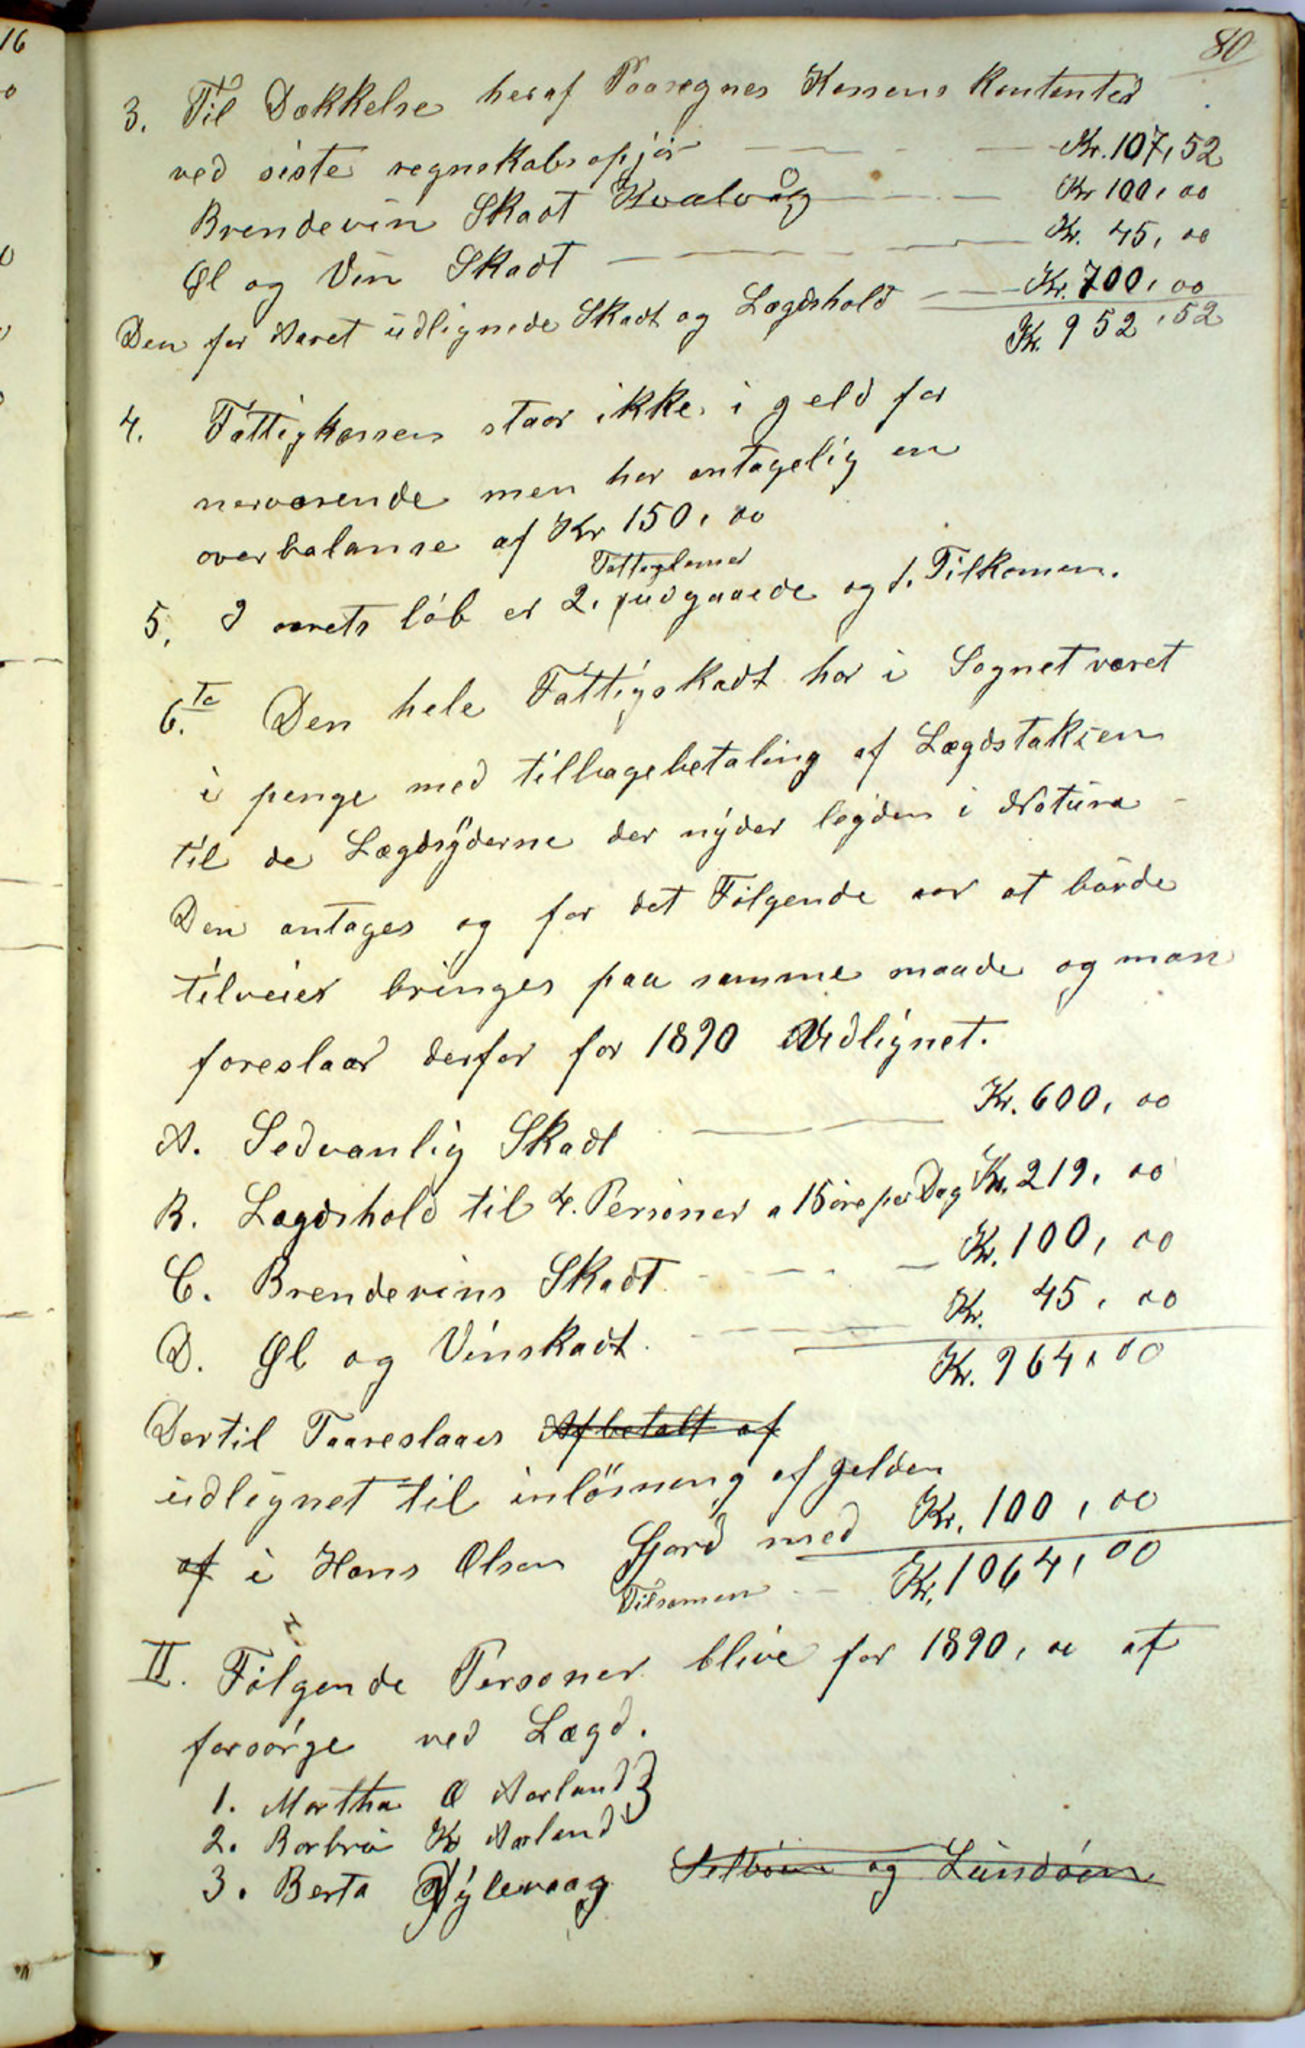 80
3. Til Dækkelse heraf Paaregnes Kassens Kontanted
ved siste regnskabsopjör Kr. 107,52
Brendevin Skadt Kvalvåg Kr 100,00
Øl og Vin Skadt Kr. 45,00
Den for Aaret udlignede Skadt og Lægdshold Kr. 700,00
Kr. 952,52
4. Fattigkassen staar ikke i geld for
nerværende men har antagelig en
overbalanse af Kr 150,00
Fattiglemer
5. I aarets löb er 2. udgaaede og 1. Tilkomen.
6.te Den hele Fattigskadt har i Sognet været
i penge med tilbagebetaling af Lægdstaksen
til de Lægdsÿderne der nÿder legden i Natura
Den antages og for det Fölgende aar at bürde
tilveier bringes paa samme maade og man
foreslaar derfor for 1890 Udlignet.
A. Sedvanlig Skadt Kr. 600,00
B. Lægdshold til 4. Personer a 15 öre per Dag Kr. 219,00
C. Brendevins Skadt Kr. 100,00
D. Øl og Vinskadt Kr. 45,00
Kr. 964,00
Dertil Faareslaaes Afbetalt af
udlignet til inlösning af gelden
af i Hans Olsen Gjord med Kr. 100,00
Tilsamen Kr. 1064,00
II. Fölgende Personer blive for 1890, at
forsörge ved Lægd.
1. Martha O Aarland
2. Barbra Kr Aarland
3. Berta Dÿlevaag Selböen og Lundöen